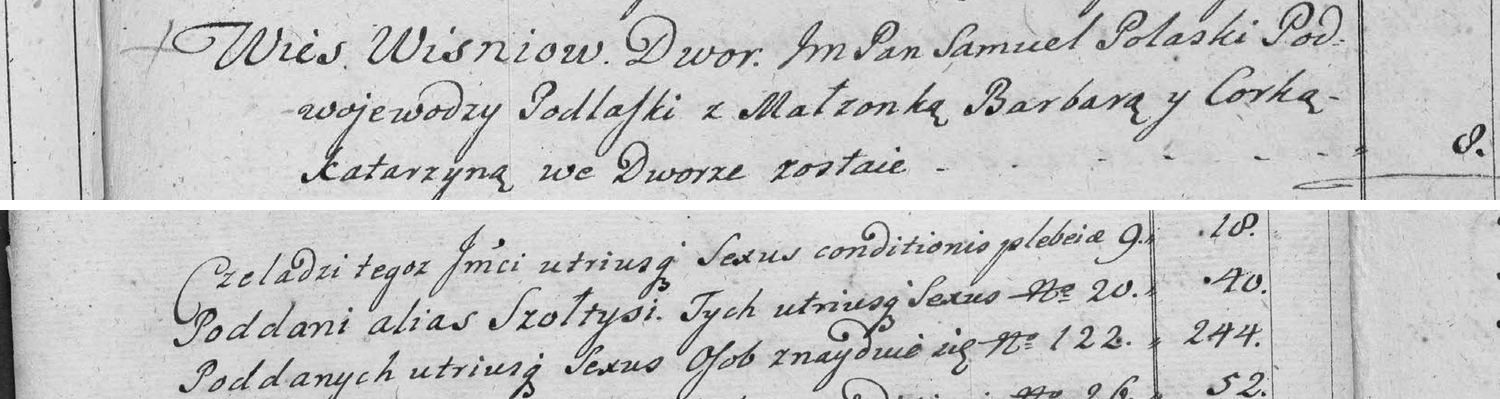 Wies Wisniow. Dwor. Jm Pan Samuel Polaski Pod-
wojewodzy Podlaski z Małzonką Barbarą y Corką-
Katarzyną we Dworze zostaie - - - - - - 8.
Czeladzi tegoz Jmci utriusq Sexus conditionis plebeiæ 9. 18.
Poddani alias Szołtysi. Tych utriusq Sexus No 20. 40.
Poddanych utriusq Sexus Osob znayduie się No 122. 244.
No 26. 52.